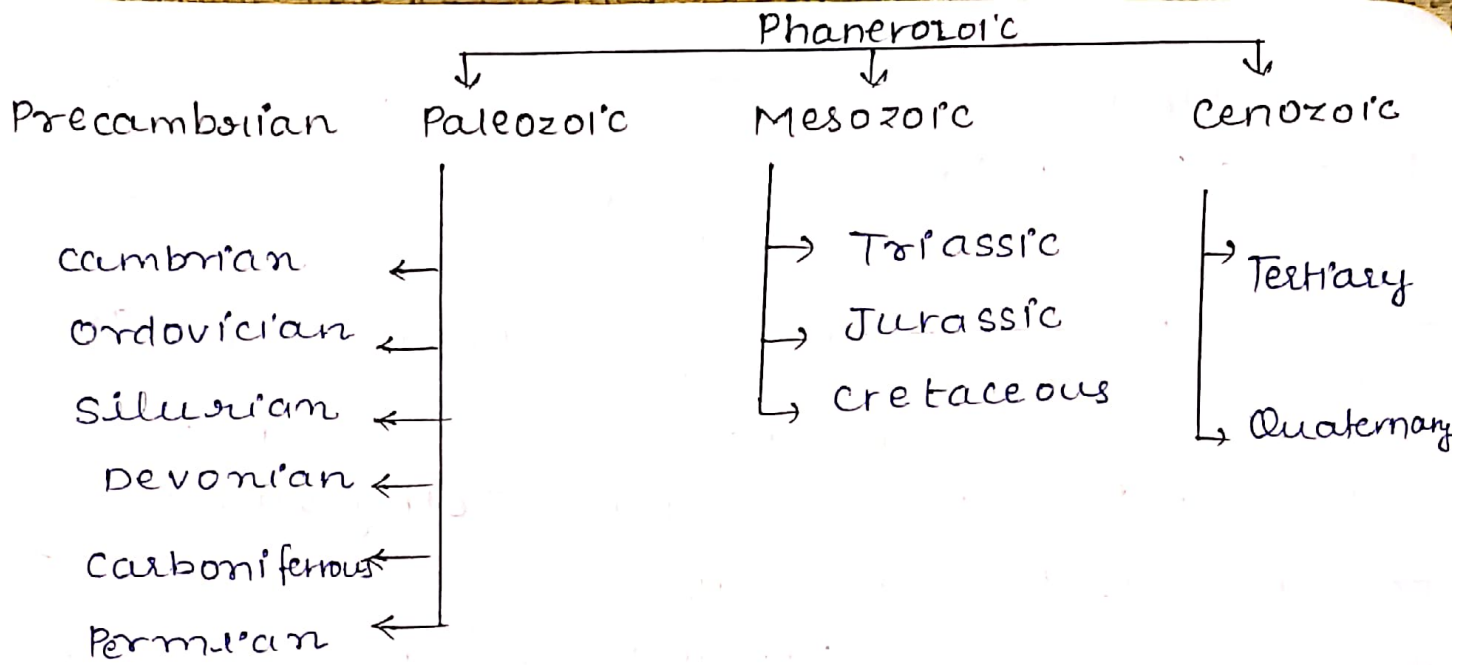 Phanerozoic
Precambrian Paleozoic Mesozoic Cenozoic
Cambrian
Ordovician
Silurian
Devonian
Carboniferrous
Permian
Triassic
Jurassic
Cretaceous
Tertiary
Quaternary